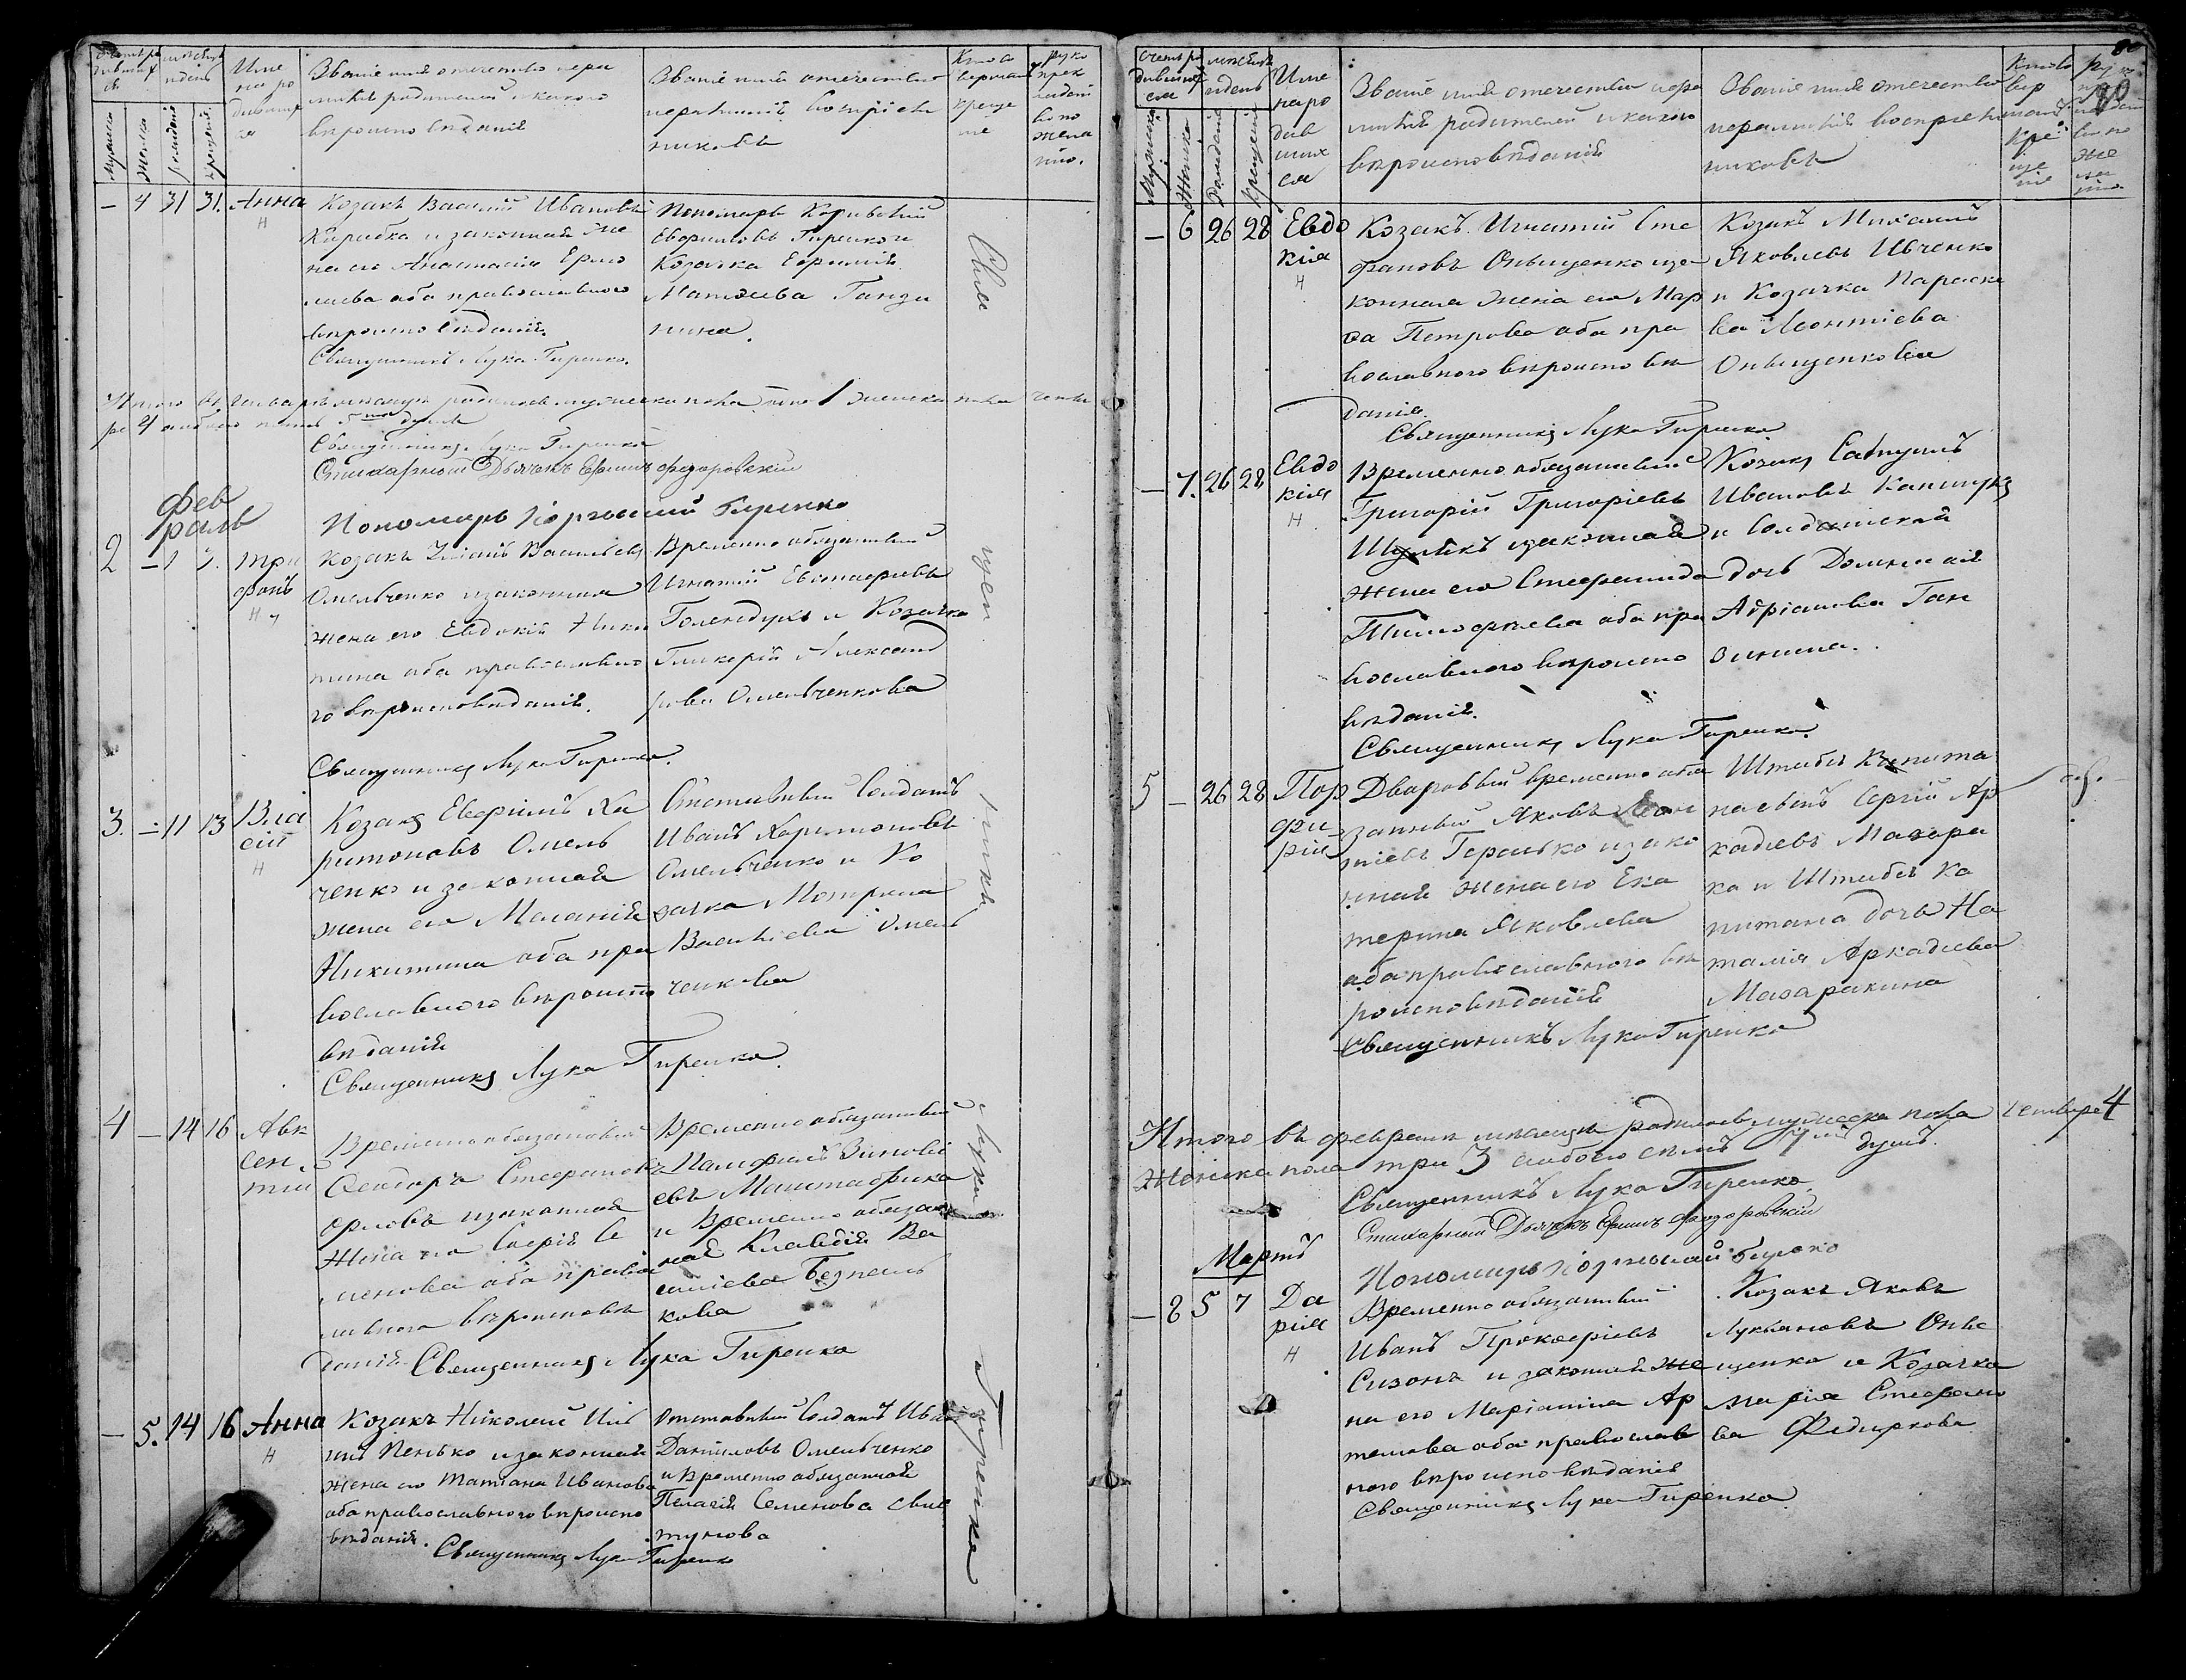 Счетъ ро
дивших
ся
мѣсяцъ
и день
Име
на ро
дивших
ся
Званіе имя отечество и фа
милія родителей и какого
вѣроисповѣданія
Званіе имя отечество
и фамилія воспріем
никовъ
Кто со
вершалъ
креще
ніе
Руко
прик
ладст
во по
жела
нію.
Мужеска
Женска
рожденія
крещенія
— 4 31 31. Анна
Н
Козакъ Василій Ивановъ
и законная же
на его Анастасія Ермо
лаева оба православного
вѣроисповѣданія.
Священникъ Лука Гиренко.
Пономарь
Гиренко и
Козачка Евфимія
Матѳіева Ганзи
нина.
Итого въ Генварѣ мѣсяцѣ родилось мужеска пола одно 1 женска пола четы
ре 4 обоего пять 5 душъ
Священникъ Лука Гиренко
Стихарный Дьячекъ Ефимъ Федоровскій
Пономарь Гиренко
Фев
раль
2 — 1 3. Три
фонъ
Н
Козакъ Васильевъ
Омельченко и законная
жена его Евдокія Ники
тина оба православно
го вѣроисповѣданія.
Священникъ Лука Гиренко.
Временно обязанный
Игнатій Евстафіевъ
Голендухъ и Козачка
Гликерія Александ
рова Омельченкова
3. — 11 13 Вла
сій
Н
Козакъ Евфимъ Ха
ритоновъ Омель
ченко и законная
жена его Меланія
Никитина оба пра
вославного вѣроиспо
вѣданія
Священникъ Лука Гиренко.
Отставный Солдатъ
Иванъ Харитоновъ
Омельченко и Ко
зачка Мотрона
Василіева Омель
ченкова
4 — 14 16 Авк
сен
тій
Временно обязанный
Ѳеодоръ Стефановъ
Орловъ и законная
жена его Софія Се
менова оба право
славного вѣроисповѣ
данія Священникъ Лука Гиренко
Временно обязанный
Памфилъ Зиновіе
евъ
и Временно обязан
ная Клавдія Ва
силіева Безпаль
кова
— 5. 14 16 Анна
Н
Козакъ Николай Иль
инъ Пенько и законная
жена его Татіана Иванова
оба православного вѣроиспо
вѣданія.
Священникъ Лука Гиренко
Отставный Солдатъ Иванъ
Даниловъ Омельченко
и Временно обязанная
Пелагія Семенова Сви
стунова
Свя
щен
никъ
Лука
Гиренко
80
Счетъ ро
дивших
ся
мѣсяцъ
и день
Име
на ро
див
ших
ся
Званіе имя отечество и фа
милія родителей и какого
вѣроисповѣданія
Званіе имя отечество
и фамилія воспріем
никовъ
Кто со
вер
шалъ
кре
ще
ніе
Мужеска
Женска
Рожденія
Крещенія
— 6 26 28 Евдо
кія
Н
Козакъ Игнатій Сте
фановъ Онищенко и за
конная жена его Мар
ѳа Петрова оба пра
вославного вѣроисповѣ
данія.
Священникъ Лука Гиренко
Козакъ Михаилъ
Яковлевъ Ивченко
и Козачка Параске
ва Леонтіева
Онищенкова
— 7. 26 28 Евдо
кія
Н
Временно обязанный
Григорій Григоріевъ
и законная
жена его Стефанида
Тимофѣева оба пра
вославного вѣроиспо
вѣданія.
Священникъ Лука Гиренко.
Козакъ
Ивановъ
и Солдатская
дочь Домникія
Адріанова Ган
зинина.
5 — 26 28 Пор
фи
рій
Дваровый временно обя
занный Яковъ Леон
тіевъ и зако
нная жена его Ека
терина Яковлева
оба православного вѣ
роисповѣданія
Священникъ Лука Гиренко
Штабсъ Капита
на сынъ Сергій Ар
кадіевъ Мазара
ка и Штабсъ Ка
питана дочь На
талія Аркадіева
Мазаракина
Итого въ февралѣ мѣсяцѣ родилось мужеска пола четыре 4
женска пола три 3 а обоего семъ 7 душъ.
Священникъ Лука Гиренко
Стихарный Дьячекъ Ефимъ Федоровскій
Пономарь Гиренко
Мартъ
— 8 5 7 Да
рія
Н
Временно обязанный
Иванъ Прокофіевъ
Сизонъ и законная же
на его Маріанина Ар
темова оба православ
ного вѣроисповѣданія
Священникъ Лука Гиренко.
Козакъ Яковъ
Лукьяновъ Они
щенко и Козачка
Марія Стефано
ва Федиркова